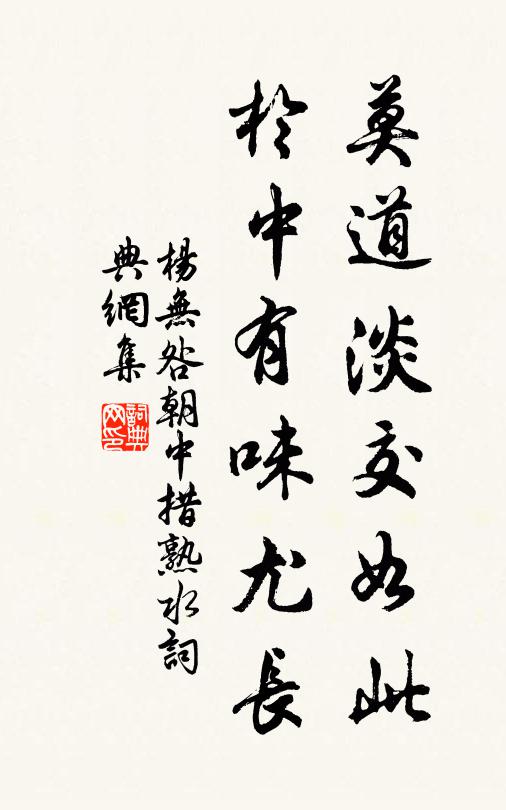 莫道淡交如此
於中有味尤長
楊無咎朝中措熟水詞
典網集
詞典網印